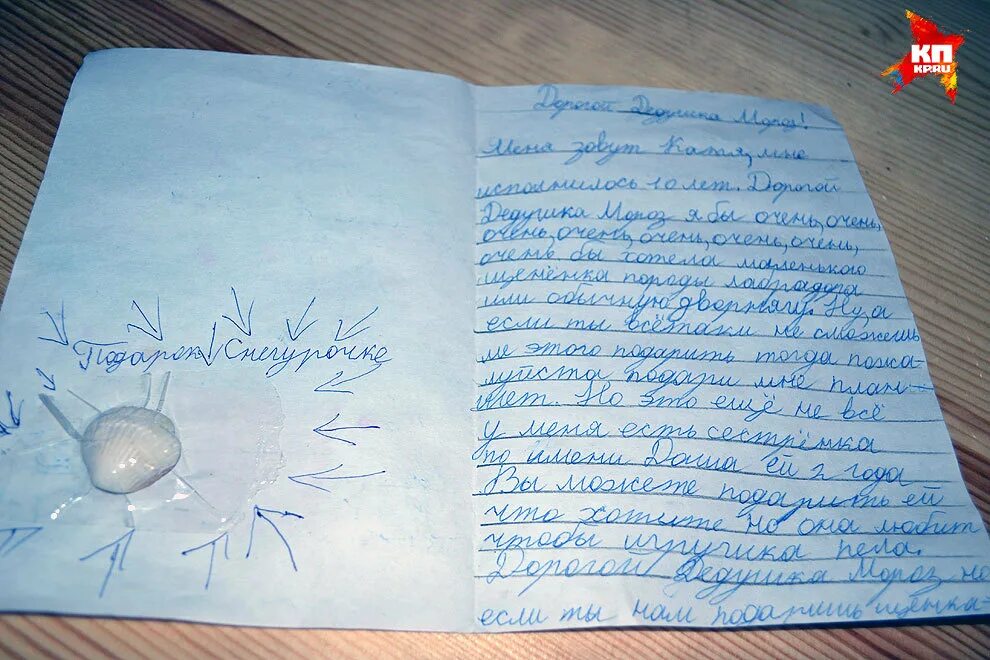 КП
KP.RU
Подарок Снегурочке
Дорогой Дедушка Мороз!
Меня зовут Катя, мне
исполнилось 10 лет. Дорогой
Дедушка Мороз я бы очень, очень,
очень, очень, очень, очень, очень,
очень бы хотела маленького
щенёнка породы лабрадора
или обычную дворнягу. Ну, а
если ты всётаки не сможешь
мне этого подарить тогда пожа-
луйста подари мне план-
шет. Но это ещё не всё
у меня есть сестрёнка
по имени Даша ей 2 года
Вы можете подарить ей
что хотите но она любит
чтобы игручика пела.
Дорогой Дедушка Мороз но
если ты нам подаришь щенка-